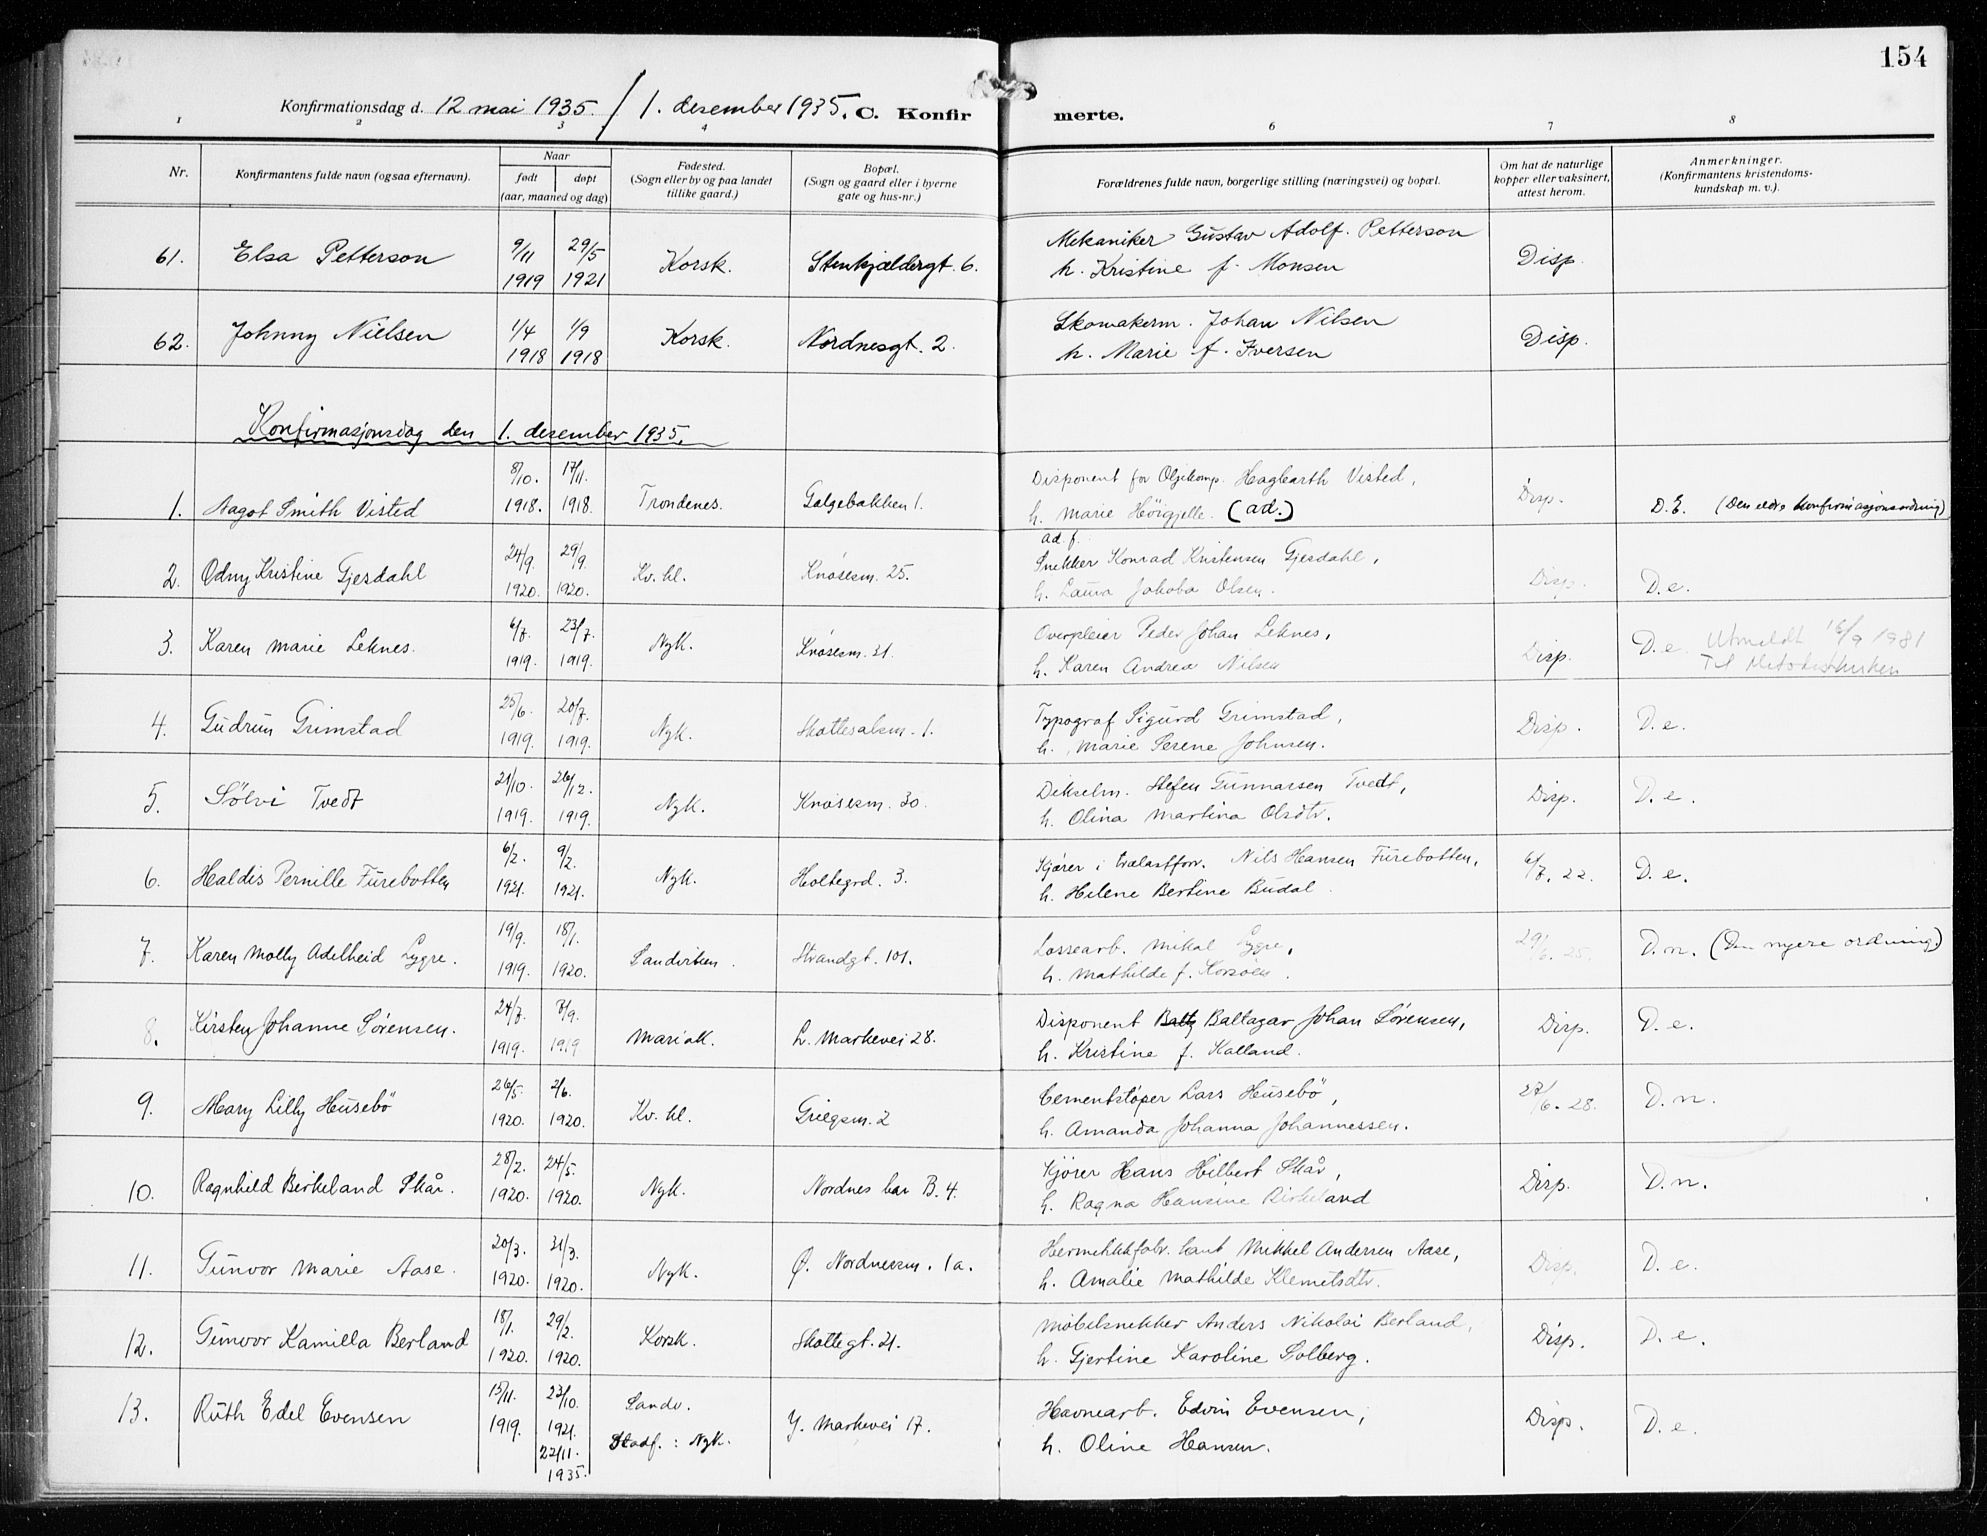 154
Konfirmationsdag d. 12 mai 1935. / 1. desember 1935. C. Konfirmerte.
1 2 3 4 6 7 8
Nr. Konfirmantens fulde navn (ogsaa efternavn). Naar født døpt (aar, maaned og dag) Fødested. (Sogn eller by og paa landet tillike gaard.) Bopæl. (Sogn og gaard eller i byerne gate og hus-nr.) Forældrenes fulde navn, borgerlige stilling (næringsvei) og bopæl. Om hat de naturlige kopper eller vaksinert, attest herom. Anmerkninger. (Konfirmantens kristendoms-kundskap m. v.).
61. Elsa Petterson 9/11 1919 29/5 1921 Korsk. Stenkjældergt. 6. Mekaniker Gustav Adolf Petterson Disp.
h. Kristine f. Monsen
62. Johnny Nielsen 1/4 1918 1/9 1918 Korsk. Nordnesgt. 2. Skomakerm. Johan Nilsen Disp.
h. Marie f. Iversen
Konfirmasjonsdag den 1. desember 1935.
1. Aagot Smith Visted 8/10. 1918. 17/11. 1918. Trondenes. Galgebakken 1. Disponent for Oljekomp. Hagbarth Visted, Disp. D.E. (Den eldre konfirmasjonsordning)
h. Marie Höigjelle. (ad.)
ad. f.
2. Odny Kristine Gjesdahl 24/9. 1920. 29/9. 1920. Kv. kl. Knösesm. 25. Snekker Konrad Kristensen Gjesdahl, Disp. D. e.
h. Laura Jakoba Olsen.
3. Karen Marie Leknes. 6/7. 1919. 23/7. 1919. Nyk. Knösesm. 31. Overpleier Peder Johan Leknes, Disp. D. e. Utmeldt 16/9 1981
h. Karen Andrea Nilsen Til Metodistkirken
4. Gudrun Grimstad 25/6. 1919. 20/7. 1919. Nyk. Skottesalsm. 1. Typograf Sigurd Grimstad, Disp. D. e.
h. Marie Serene Johnsen.
5. Sölvi Tvedt 21/10. 1919. 26/12. 1919. Nyk. Knösesm. 30. Dekselm. Stefen Gunnarsen Tvedt, Disp. D. e.
h. Olina Martina Olsdtr.
6. Haldis Pernille Furebotten 6/2. 1921. 9/2. 1921. Nyk. Holtegrd. 3. Kjører i trælastforr. Nils Hansen Furebotten, 6/7. 22. D. e.
h. Helene Bertine Budal.
7. Karen Molly Adelheid Lygre. 19/9. 1919. 18/1. 1920. Sandviken. Strandgt. 101. Lossearb. Mikal Lygre, 29/6. 25. D. n. (Den nyere ordning.)
h. Mathilde f. Korsöen.
8. Kirsten Johanne Sörensen. 24/7. 1919. 7/9. 1919 Mariak. L. Markevei 28. Disponent Baltz Baltazar Johan Sörensen, Disp. D. e.
h. Kristine f. Kalland.
9. Mary Lilly Husebö 26/5. 1920. 2/6. 1920. Kv. kl. Griegsm. 2 Cementstöper Lars Husebö, 27/6. 28. D. n.
h. Amanda Johanna Johannessen.
10. Ragnhild Birkeland Skår. 28/2. 1920. 24/5. 1920. Nyk. Nordnes bar B. 4. Kjörer Hans Hilbert Skår, Disp. D. n.
h. Ragna Hansine Birkeland
11. Gunvor Marie Aase. 20/3. 1920. 31/3. 1920. Nyk. Ø. Nordnessm. 1a. Hermetikkfabr. Mikkel Andersen Aase, Disp. D. e.
h. Amalie Mathilde Klemetsdtr.
12. Gunvor Kamilla Berland 18/1. 1920. 29/2. 1920. Korsk. Skottegt. 21. Möbelsnekker Anders Nikolai Berland, Disp. D. e.
h. Gjertine Karoline Solberg.
13. Ruth Edel Evensen 15/11. 1919. 23/10. 1921. Sandv. Y. Markevei 17. Havnearb. Edvin Evensen, Disp. D. e.
22/11. 1935. Stadf.: Nyk. h. Oline Hansen.